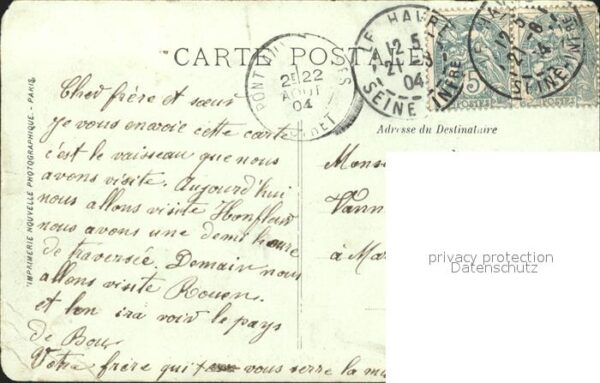 CARTE POSTALE
LE HAVRE
12 5
21-8
04
SEINE INFRE
LE HAVRE
12 5
21-8
04
SEINE INFRE
5
POSTES
POSTES
22
AOUT
04
Adresse du Destinataire
Cher frère et sœur
Je vous envoie cette carte
c'est le vaisseau que nous
avons visité. Aujourd'hui
nous allons visité Honfleur
nous avons une demi heure
de traversée. Demain nous
allons visité Rouen.
et l'on ira voir le pays
de
Votre frère qui vous serre la ma
Monse
Vann
à Ma
privacy protection
Datenschutz
IMPRIMERIE NOUVELLE PHOTOGRAPHIQUE - PARIS